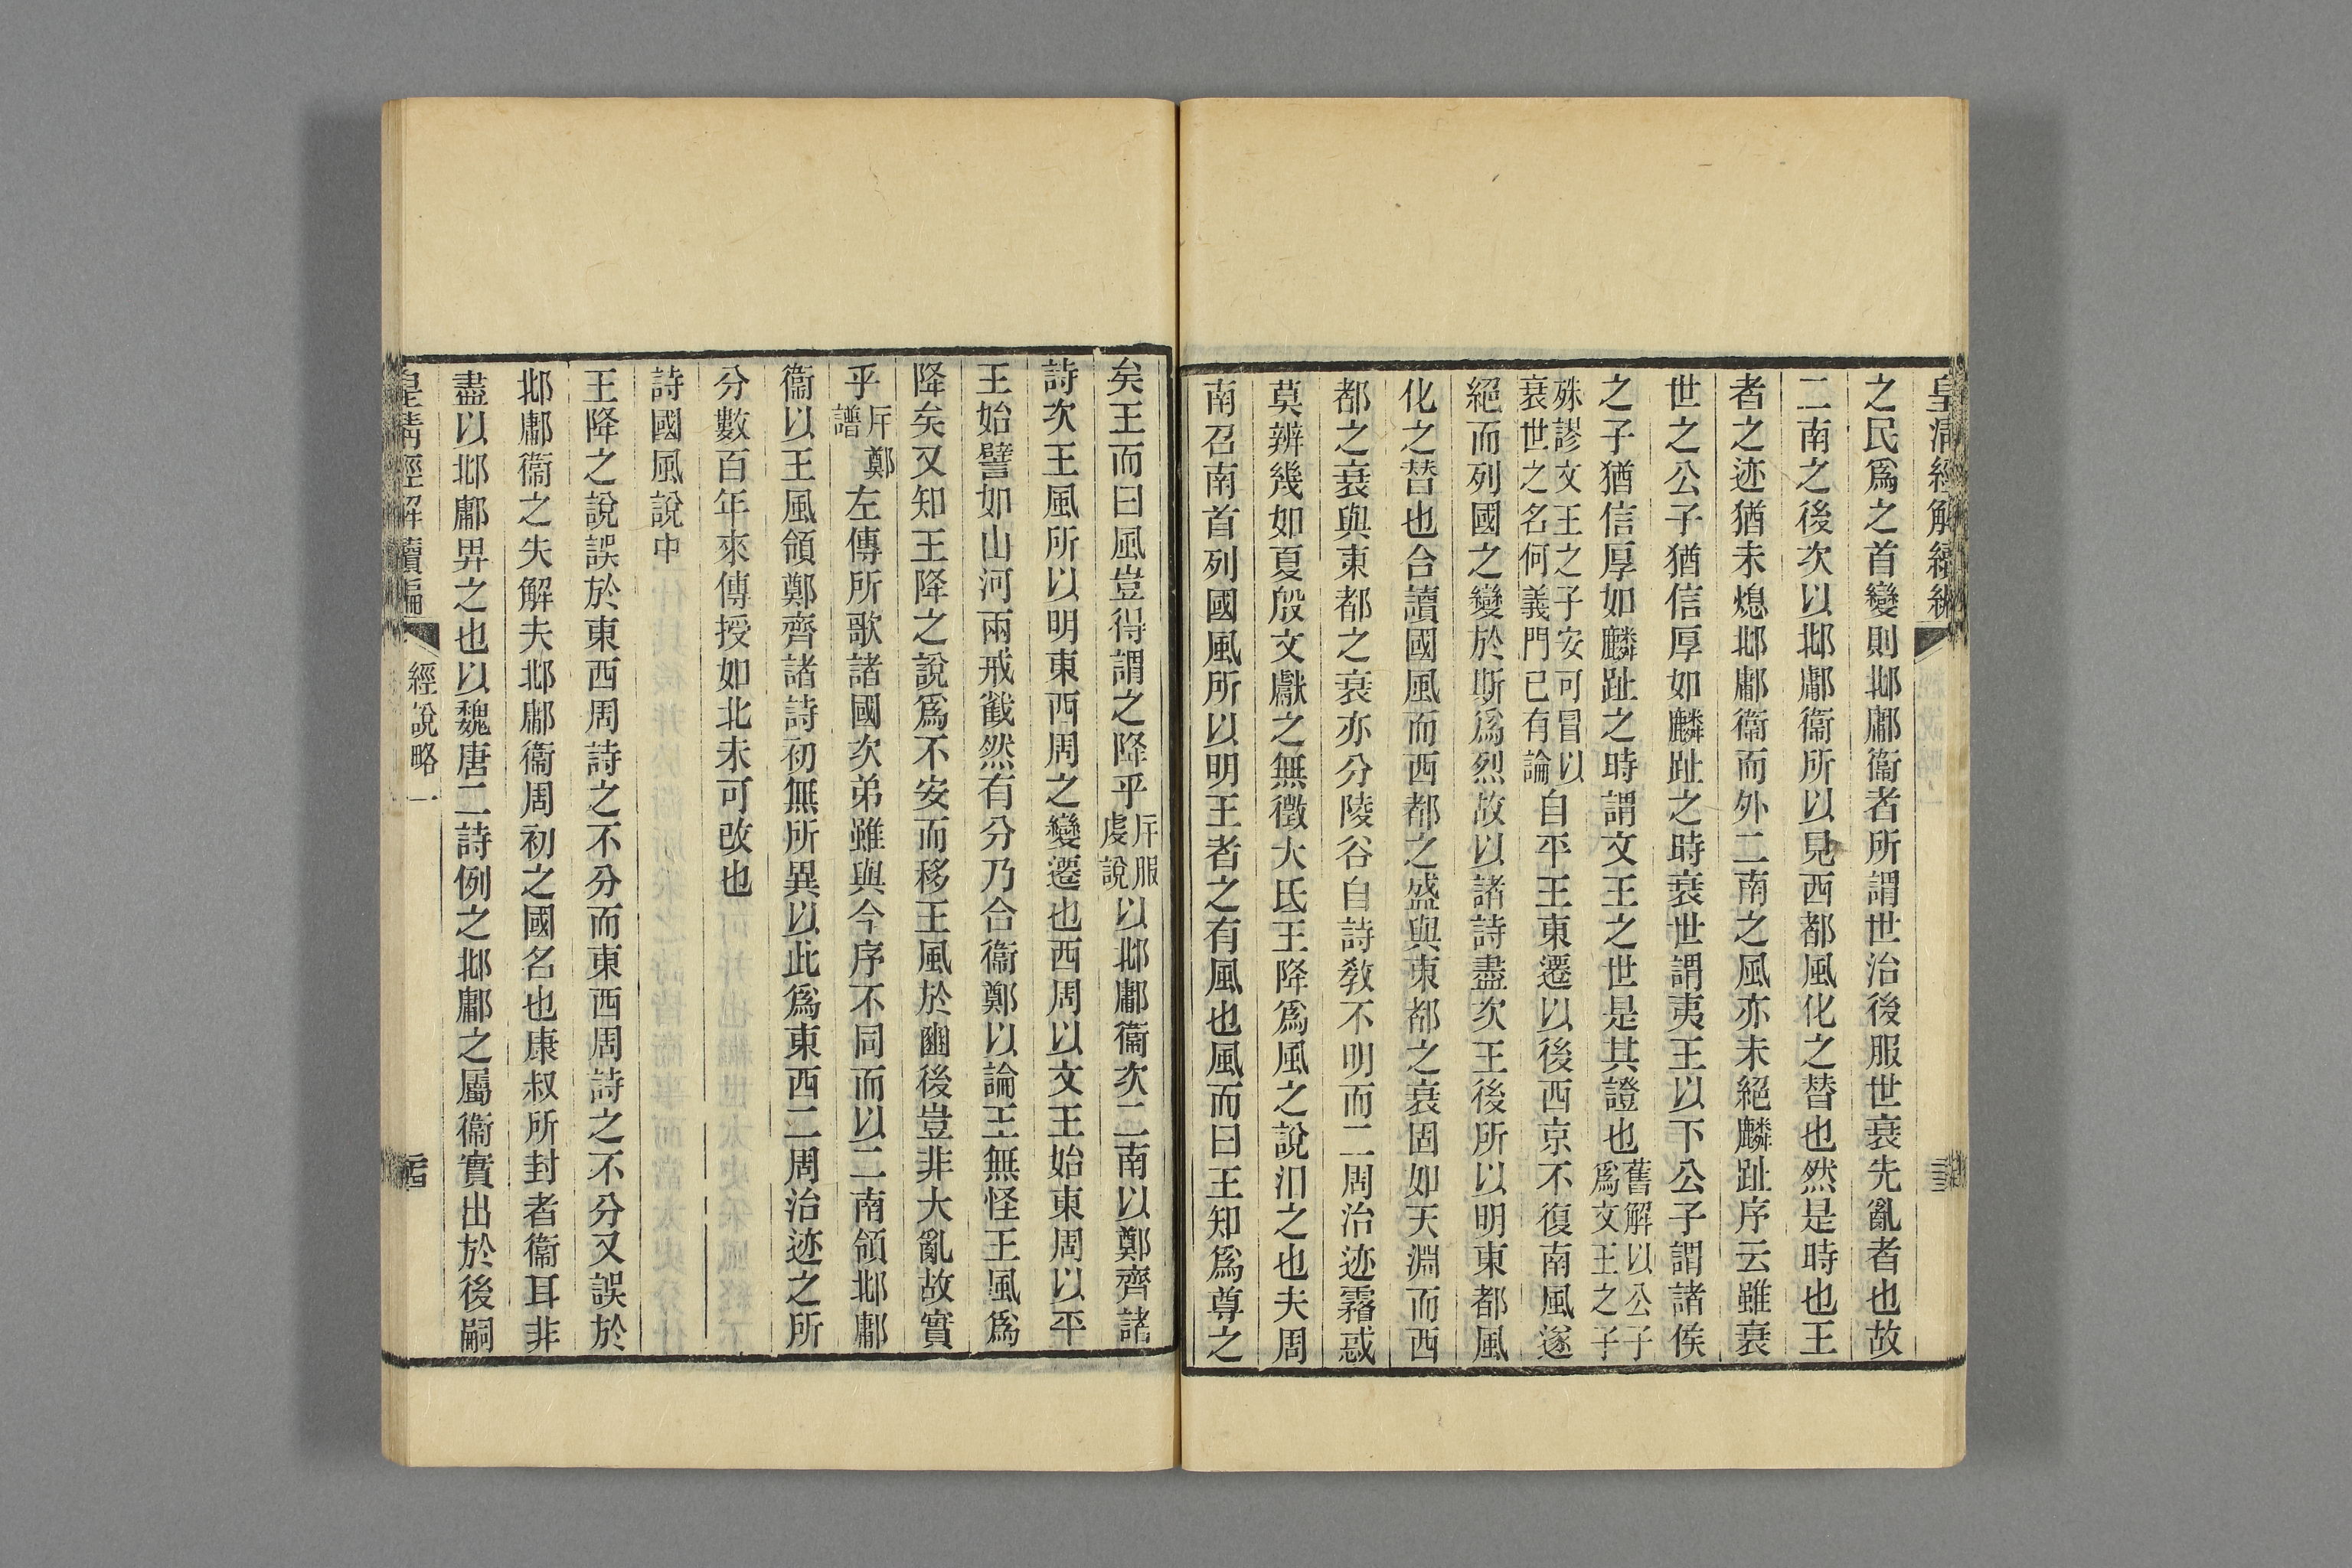 皇清經解續編
之民爲之首變則邶鄘衞者所謂世治後服世衰先亂者也故
二南之後次以邶鄘衞所以見西都風化之替也然是時也王
者之迹猶未熄邶鄘衞而外二南之風亦未絕麟趾序云雖衰
世之公子猶信厚如麟趾之時衰世謂夷王以下公子謂諸侯
之子猶信厚如麟趾之時謂文王之世是其證也舊解以公子爲文王之子
殊謬文王之子安可冒以衰世之名何義門已有論自平王東遷以後西京不復南風遂
絕而列國之變於斯爲烈故以諸詩盡次王後所以明東都風
化之替也合讀國風而西都之盛與東都之衰固如天淵而西
都之衰與東都之衰亦分陵谷自詩教不明而二周治迹霧惑
莫辨幾如夏殷文獻之無徵大氐王降爲風之說汨之也夫周
南召南首列國風所以明王者之有風也風而曰王知爲尊之
矣王而曰風豈得謂之降乎斥服虔說以邶鄘衞次二南以鄭齊諸
詩次王風所以明東西周之變遷也西周以文王始東周以平
王始譬如山河兩戒截然有分乃合衞鄭以論王無怪王風爲
降矣又知王降之說爲不安而移王風於豳後豈非大亂故實
乎斥鄭譜左傳所歌諸國次弟雖與今序不同而以二南領邶鄘
衞以王風領鄭齊諸詩初無所異以此爲東西二周治迹之所
分數百年來傳授如北未可改也
詩國風說中
王降之說誤於東西周詩之不分而東西周詩之不分又誤於
邶鄘衞之失解夫邶鄘衞周初之國名也康叔所封者衞耳非
盡以邶鄘畀之也以魏唐二詩例之邶鄘之屬衞實出於後嗣
皇清經解續編
經說略一